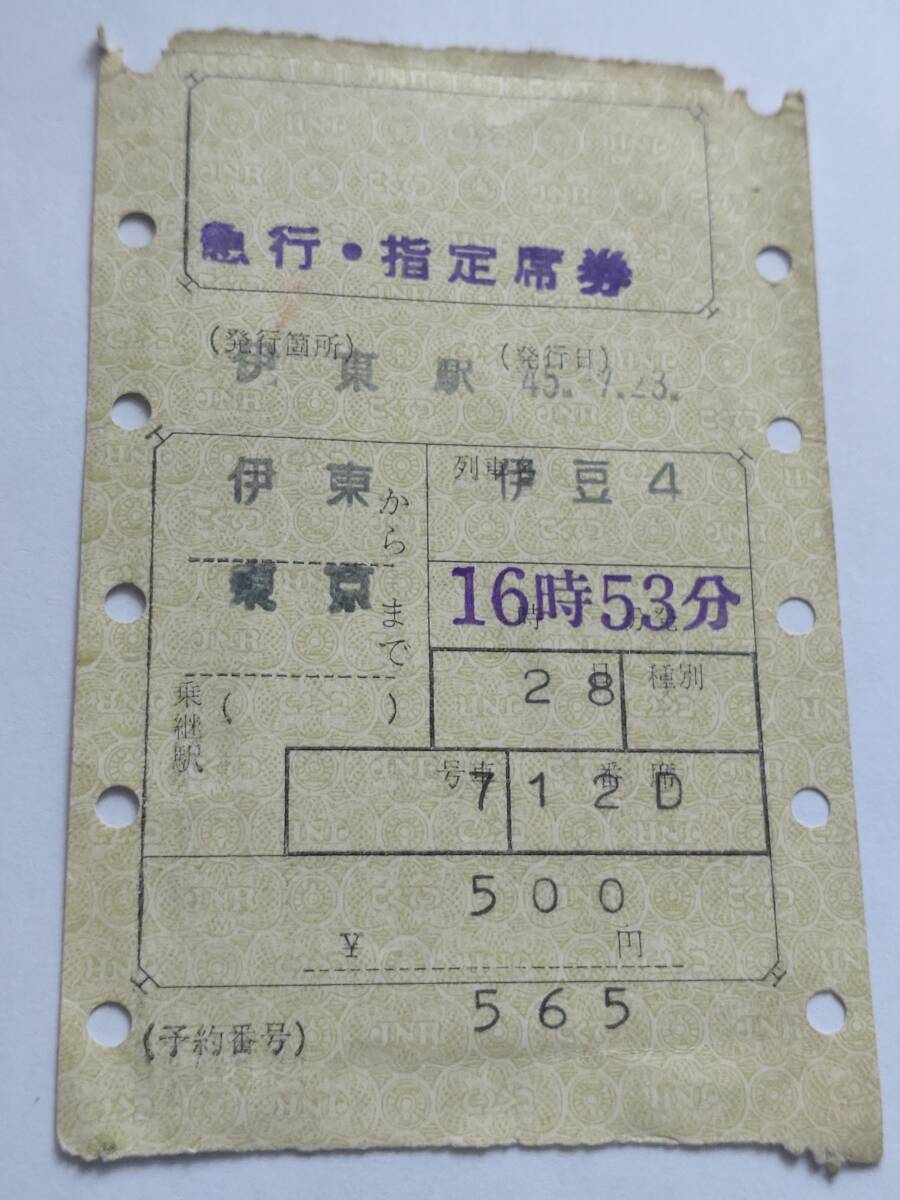 急行・指定席券
(発行箇所) (発行日)
伊東駅 45. 7.23.
伊東から
東京まで
乗継駅 ( )
列車名 伊豆4
16時53分
時 分発
28号
種別
号車 7
番席 12D
500
¥ 円
565
(予約番号)